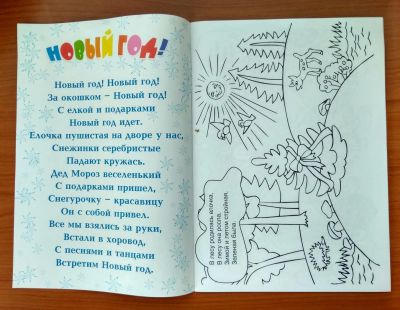 НОВЫЙ ГОД!
Новый год! Новый год!
За окошком – Новый год!
С елкой и подарками
Новый год идет.
Елочка пушистая на дворе у нас,
Снежинки серебристые
Падают кружась.
Дед Мороз веселенький
С подарками пришел,
Снегурочку – красавицу
Он с собой привел.
Все мы взялись за руки,
Встали в хоровод,
С песнями и танцами
Встретим Новый год.
В лесу родилась елочка,
В лесу она росла.
Зимой и летом стройная,
Зеленая была.